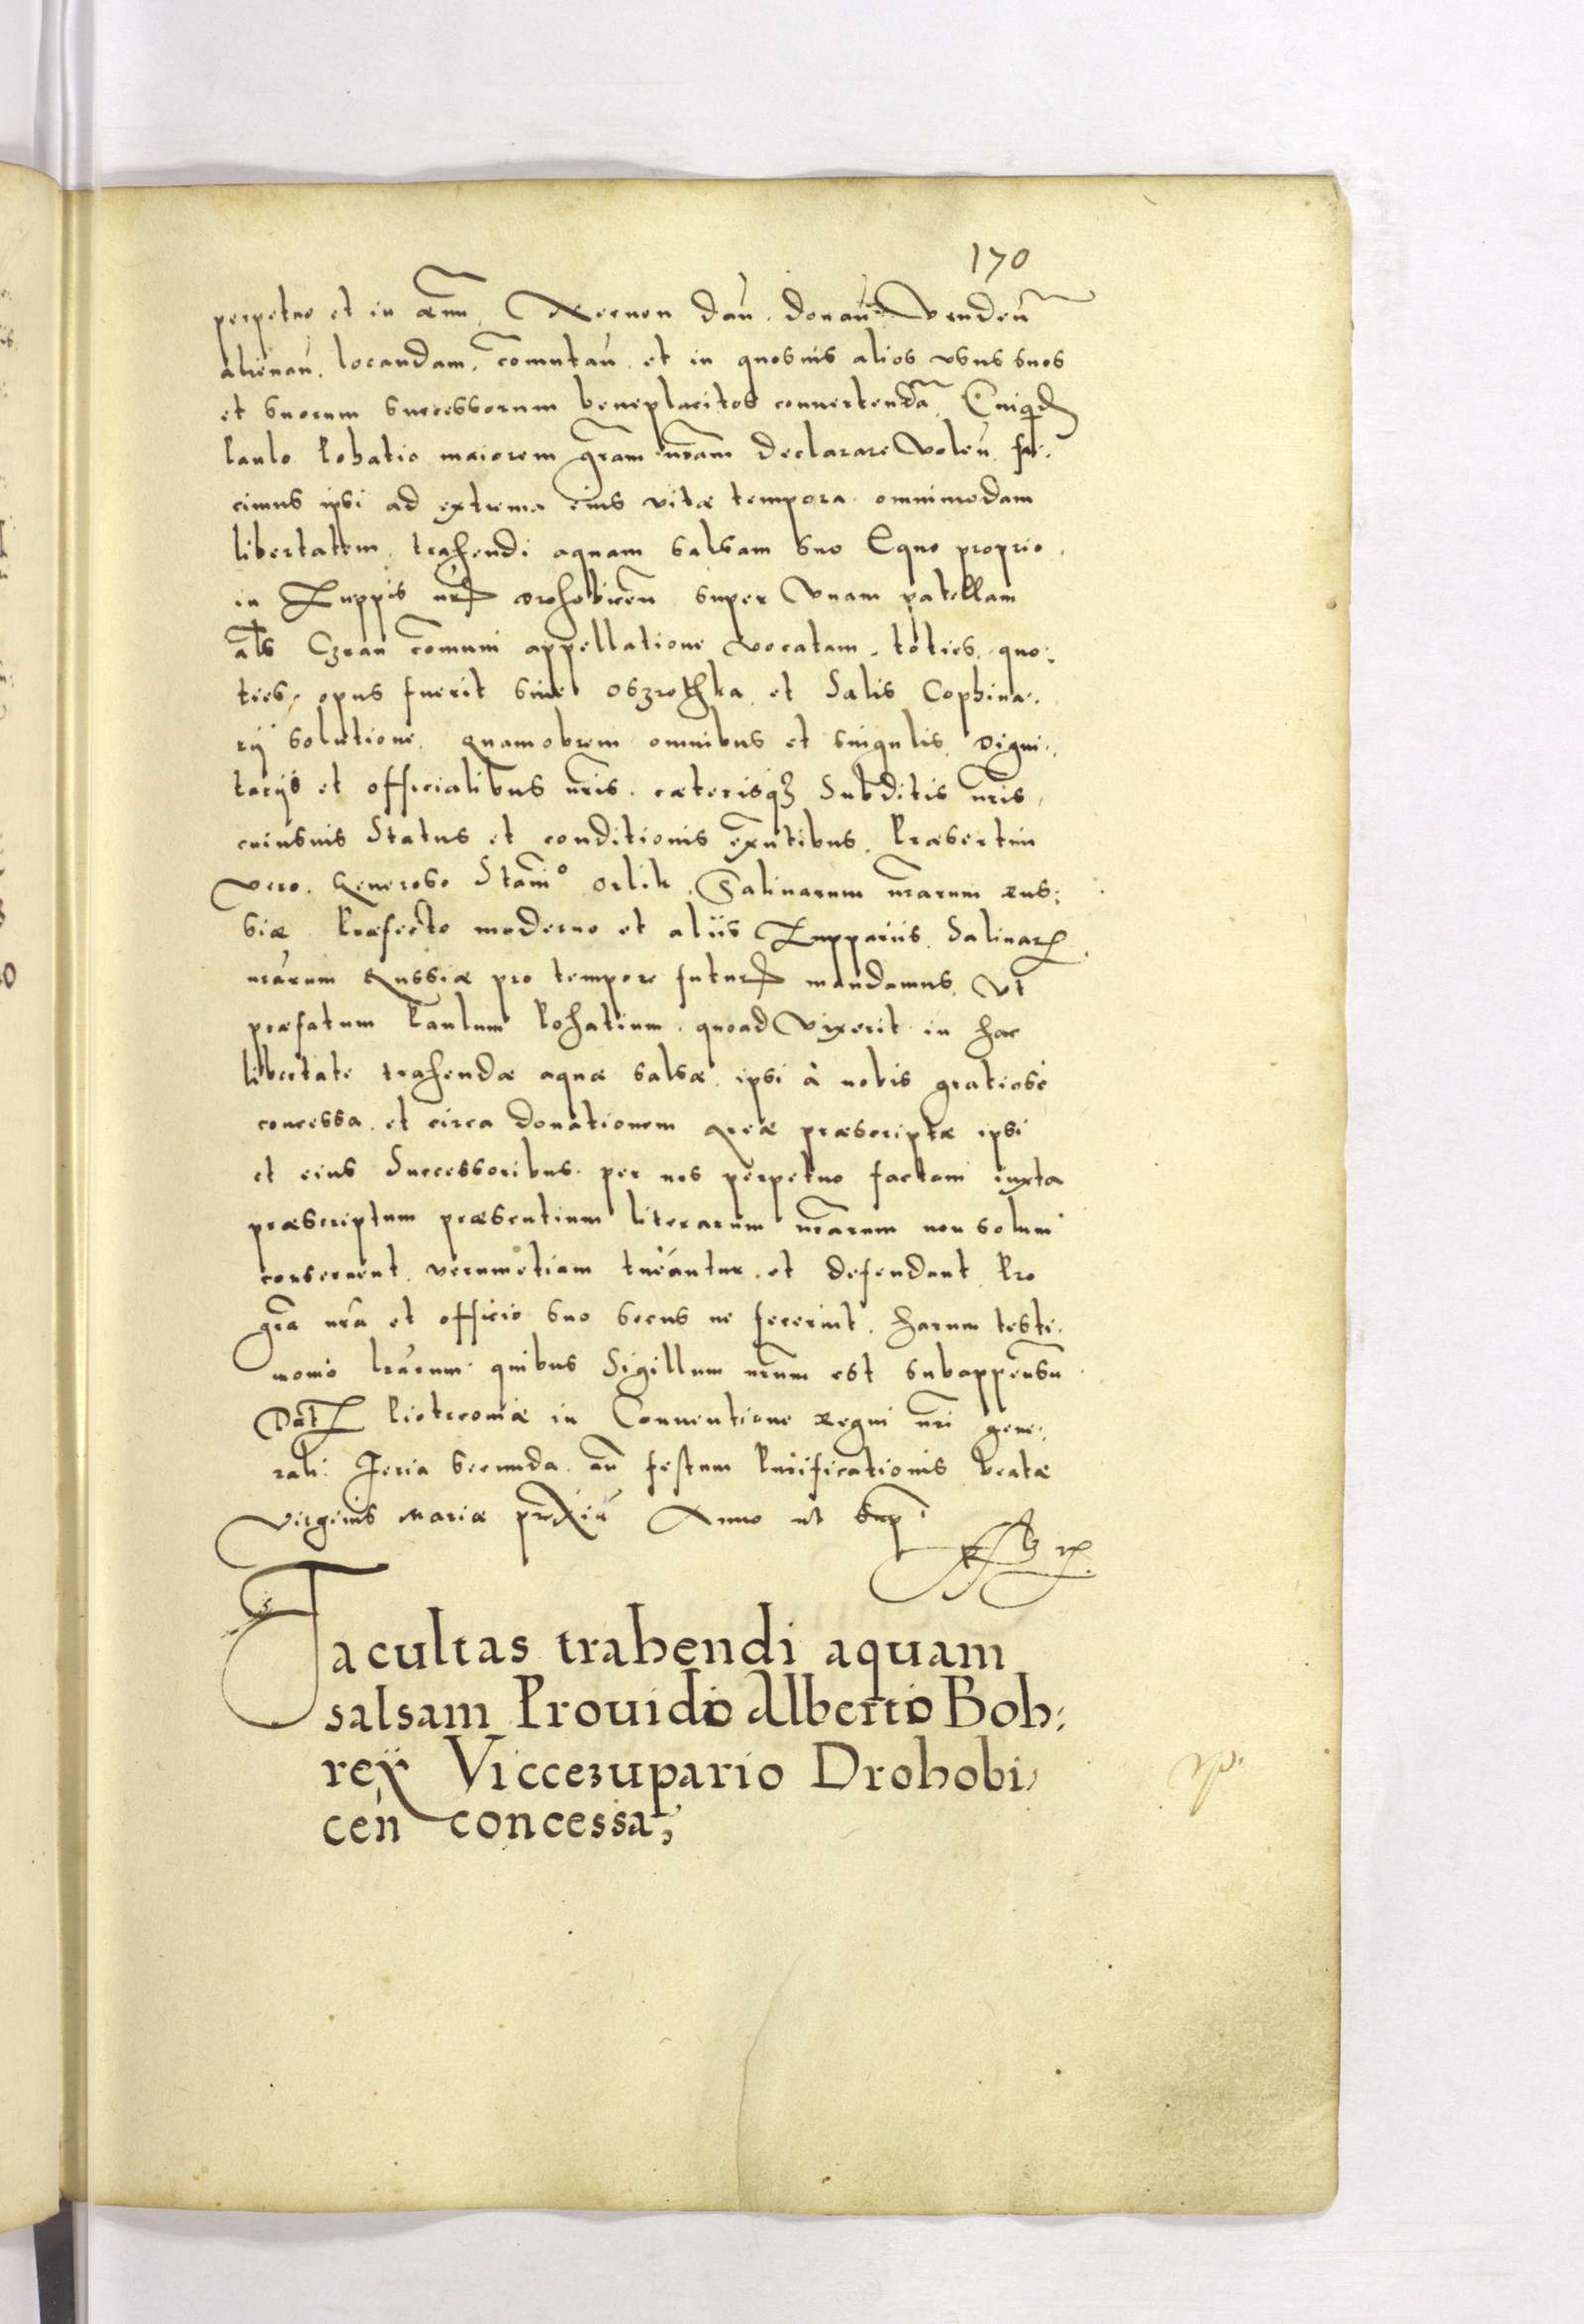 170
perpetuo et in æuu. Necnon dañ. donañ. Vendeñ
alienañ. locandam. com̃utañ. et in quosuis alios vsus suos
et suorum successorum beneplacitos conuertendã. Cuiquid
Paulo Rohatio maiorem gr̃am nr̃am declarare Voleñ. fa:
cimus ipsi ad extrema eius vitæ tempora omnimodam
libertatem trahendi aquam salsam suo Equo proprio
in Zuppis nr̃is Drohobiceñ super Vnam patellam
als̃ Czran com̃uni appellatione Vocatam. toties. quo:
ties. opus fuerit sine oszrothka et Salis Cophina:
rij solutione. Quamobrem omnibus et singulis Digni:
tarijs et officialibus nr̃is. cæterisq3 Subditis nr̃is
cuiusuis Status et conditionis exñtibus. Præsertim
Vero. Generoso Stanĩo Orlik. Salinarum nr̃arum Rus:
siæ Præfecto moderno et aliis Zuppariis Salinar
nr̃arum Russiæ pro tempore futuris mandamus. Vt
præfatum Paulum Rohatium. quoad Vixerit in hac
libertate trahendæ aquæ salsæ ipsi à nobis gratiosè
concessa. et circa donationem Areæ præscriptæ ipsi
et eius Successoribus per nos perpetuo factam iuxta
præscriptum præsentium literarum nr̃arum non solum
conseruent. verumetiam tueantur. et defendant Pro
gr̃a nr̃a et officio suo secus ne fecerint. harum testi:
monio lr̃arum quibus Sigillum nr̃um est subappensũ
Dat̃ Piotrcouiæ in Conuentione Regni nr̃i gene:
rali. Feria secunda añ festum Purificationis beatæ
Virginis Mariæ prox̃i Anno ut Sup
Facultas trahendi aquam
salsam Prouido Alberto Bob:
rek Viccezupario Drohobi,
ceń concessa,